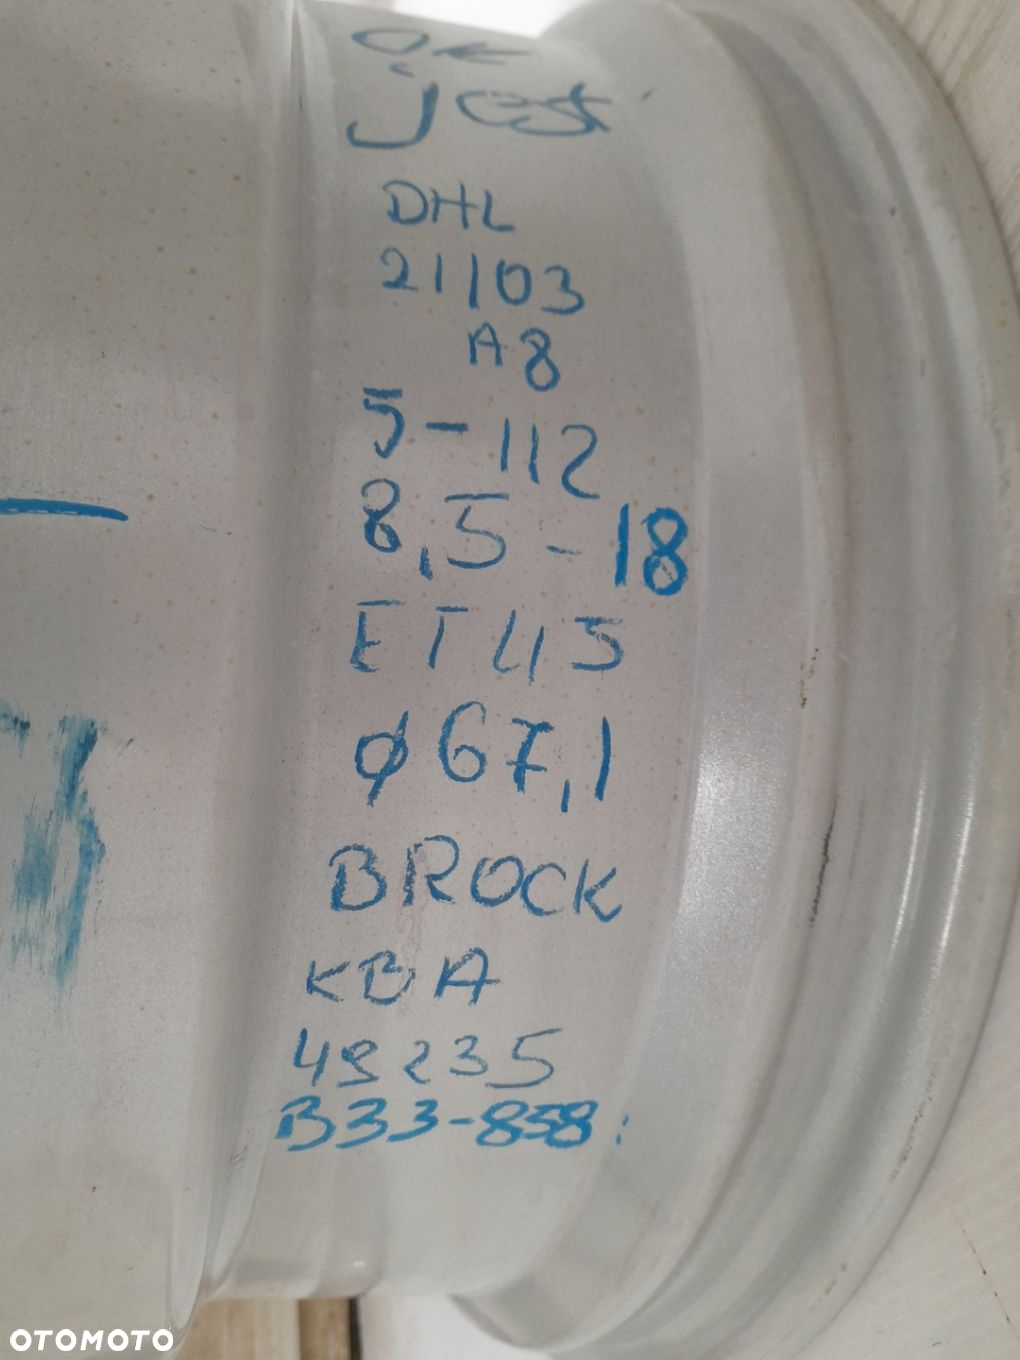 OK
jest
DHL
21/03
A8
5-112
8,5-18
ET45
ø67,1
BROCK
KBA
49235
B33-858
OTOMOTO